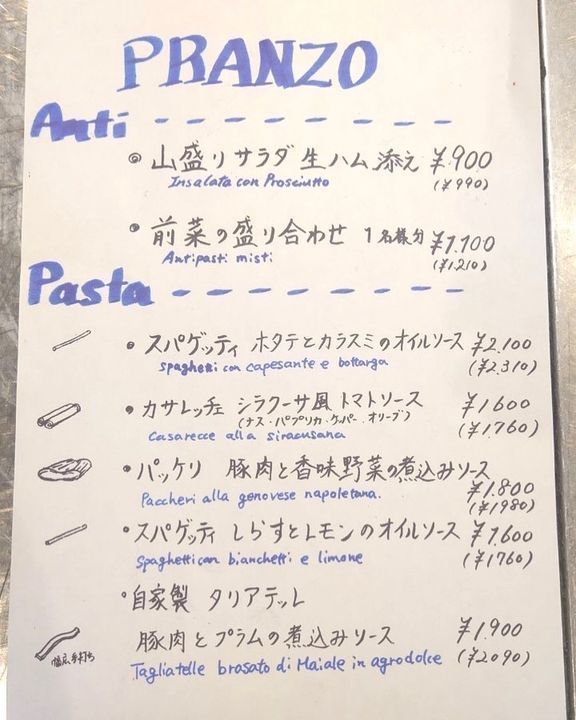 PRANZO
Anti
山盛りサラダ 生ハム添え ¥900
Insalata con Prosciutto (¥990)
前菜の盛り合わせ 1名様分 ¥1,100
Antipasti misti (¥1,210)
Pasta
スパゲッティ ホタテとカラスミのオイルソース ¥2,100
spaghetti con capesante e bottarga (¥2,310)
カサレッチェ シラクーサ風 トマトソース ¥1600
(ナス・パプリカ・ケッパー・オリーブ)
Casarecce alla siracusana (¥1,760)
パッケリ 豚肉と香味野菜の煮込みソース
¥1,800
Paccheri alla genovese napoletana. (¥1980)
スパゲッティ しらすとレモンのオイルソース ¥1,600
Spaghetti con bianchetti e limone (¥1760)
自家製 タリアテッレ
豚肉とプラムの煮込みソース ¥1,900
幅広手打ち
Tagliatelle brasato di Maiale in agrodolce (¥2090)